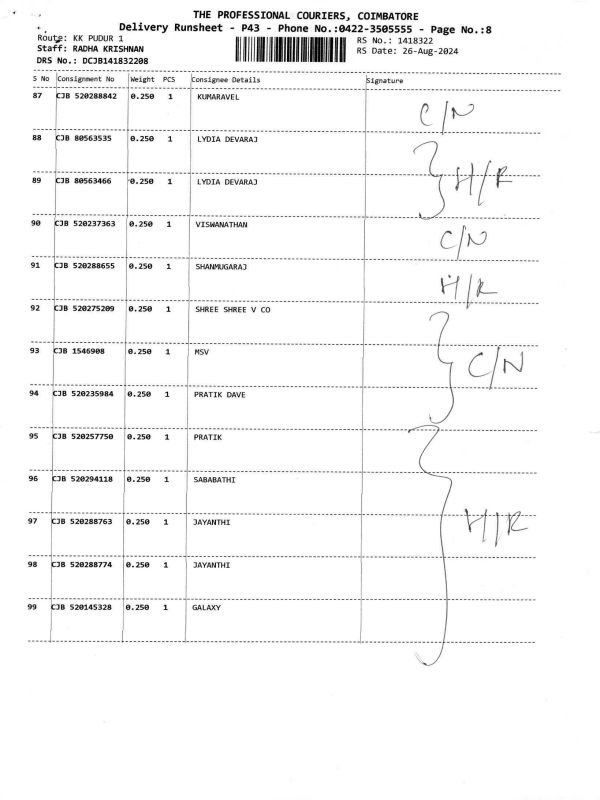 THE PROFESSIONAL COURIERS, COIMBATORE
Delivery Runsheet - P43 - Phone No.:0422-3505555 - Page No.:8
Route: KK PUDUR 1
RS No.: 1418322
Staff: RADHA KRISHNAN
RS Date: 26-Aug-2024
DRS No.: DCJB141832208
S No Consignment No Weight PCS Consignee Details Signature
87 CJB 520288842 0.250 1 KUMARAVEL C/N
88 CJB 80563535 0.250 1 LYDIA DEVARAJ
H/R
89 CJB 80563466 0.250 1 LYDIA DEVARAJ
90 CJB 520237363 0.250 1 VISWANATHAN C/N
91 CJB 520288655 0.250 1 SHANMUGARAJ H/R
92 CJB 520275209 0.250 1 SHREE SHREE V CO
93 CJB 1546908 0.250 1 MSV C/N
94 CJB 520235984 0.250 1 PRATIK DAVE
95 CJB 520257750 0.250 1 PRATIK
96 CJB 520294118 0.250 1 SABABATHI
97 CJB 520288763 0.250 1 JAYANTHI H/R
98 CJB 520288774 0.250 1 JAYANTHI
99 CJB 520145328 0.250 1 GALAXY